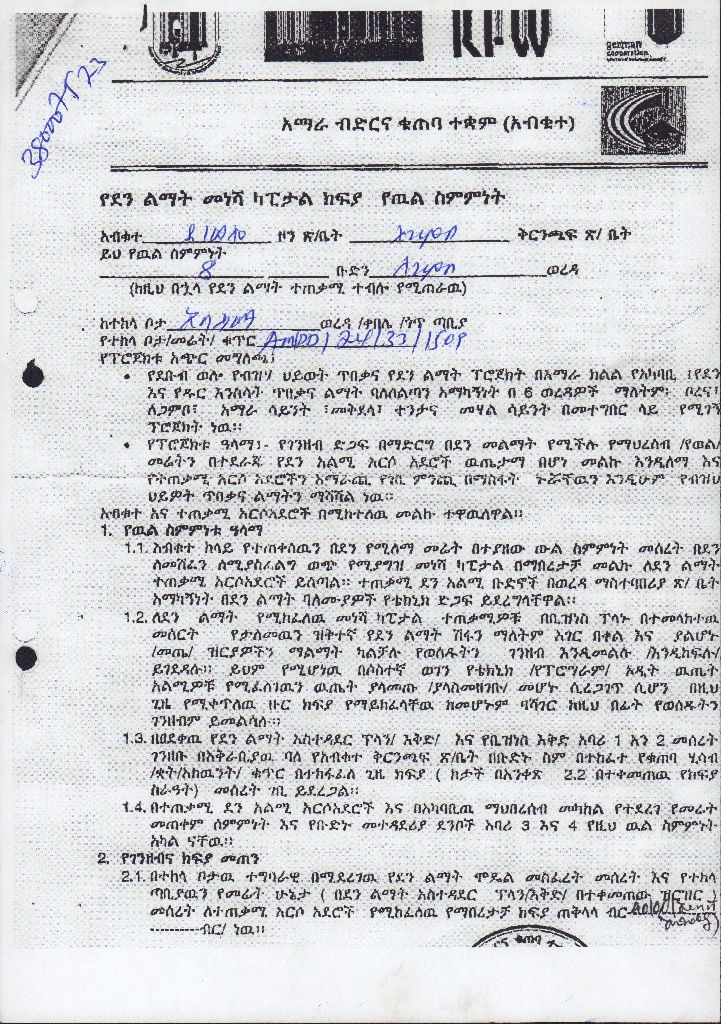 KFW
german
cooperation
አማራ ብድርና ቁጠባ ተቋም (አብቁተ)
የደን ልማት መነሻ ካፒታል ክፍያ የዉል ስምምነት
አብቁተ ዞን ጽ/ቤት ቅርንጫፍ ጽ/ ቤት
ይህ የዉል ስምምነት
8 ቡድን ወረዳ
(ከዚህ በኋላ የደን ልማት ተጠቃሚ ተብሎ የሚጠራዉ)
ከተከላ ቦታ ወረዳ /ቀበሌ /ጎጥ ጣቢያ
የተከላ ቦታ/መሬት/ ቁጥር
የፕሮጀክቱ አጭር መግለጫ፤
• የደቡብ ወሎ የብዝሃ ህይወት ጥበቃና የደን ልማት ፕሮጀክት በአማራ ክልል የአካባቢ ፣የደን
እና የዱር እንስሳት ጥበቃና ልማት ባለስልጣን አማካኝነት በ 6 ወረዳዎች ማለትም፡ ቦረና፣
ለጋምቦ፣ አማራ ሳይንት ፣መቅደላ፣ ተንታና መሃል ሳይንት በመተግበር ላይ የሚገኝ
ፕሮጀክት ነዉ፡፡
• የፕሮጀክቱ ዓላማ፤- የገንዘብ ድጋፍ በማድርግ በደን መልማት የሚችሉ የማህረሰብ /የወል/
መሬትን በተደራጁ የደን አልሚ አርሶ አደሮች ዉጤታማ በሆነ መልኩ እንዲለማ እና
የተጠቃሚ አርሶ አደሮችን አማራጪ የገቢ ምንጪ በማስፋት ኑሯቸዉን እንዲሁም የብዝሀ
ህይዎት ጥበቃና ልማትን ማሻሻል ነዉ፡፡
አብቁተ እና ተጠቃሚ አርሶአደሮች በሚከተለዉ መልኩ ተዋዉለዋል፡፡
1. የዉል ስምምነቱ ዓላማ
1.1. አብቁተ ከላይ የተጠቀሰዉን በደን የሚለማ መሬት በተያዘው ውል ስምምነት መሰረት በደን
ለመሸፈን ለሚያስፈልግ ወጭ የሚያግዝ መነሻ ካፒታል በማበረታቻ መልኩ ለደን ልማት
ተጠቃሚ አርሶአደሮች ይሰጣል፡፡ ተጠቃሚ ደን አልሚ ቡድኖች በወረዳ ማስተባበሪያ ጽ/ ቤት
አማካኝነት በደን ልማት ባለሙያዎች የቴክኒክ ድጋፍ ይደረግላቸዋል፡፡
1.2. ለደን ልማት የሚከፈለዉ መነሻ ካፒታል ተጠቃሚዎቹ በቢዝነስ ፕላኑ በተመላከተዉ
መሰርት የታለመዉን ዝቅተኛ የደን ልማት ሽፋን ማለትም አገር በቀል እና ያልሆኑ
/መጤ/ ዝርያዎችን ማልማት ካልቻሉ የወሰዱትን ገንዘብ እንዲመልሱ /እንዲከፍሉ/
ይገደዳሉ፡፡ ይህም የሚሆነዉ በሶስተኛ ወገን የቴክኒክ /የፕሮግራም/ ኦዲት ዉጤት
አልሚዎቹ የሚፈለገዉን ዉጤት ያላመጡ /ያላስመዘገቡ/ መሆኑ ሲረጋገጥ ሲሆን በዚህ
ጊዜ የሚቀጥለዉ ዙር ክፍያ የማይከፈላቸዉ ከመሆኑም ባሻገር ከዚህ በፊት የወሰዱትን
ገንዘብም ይመልሳሉ፡፡
1.3. በፀደቀዉ የደን ልማት አስተዳደር ፕላን/ እቅድ/ እና የቢዝነስ እቅድ አባሪ 1 አን 2 መሰረት
ገንዘቡ በአቅራቢያዉ ባለ የአብቁተ ቅርንጫፍ ጽ/ቤት በቡድኑ ስም በተከፈተ የቁጠባ ሂሳብ
/ቋት/አከዉንት/ ቁጥር በተከፋፈለ ጊዜ ክፍያ ( ከታች በአንቀጽ 2.2 በተቀመጠዉ የክፍያ
ስራዓት) መሰረት ገቢ ይደረጋል፡፡
1.4. በተጠቃሚ ደን አልሚ አርሶአደሮች እና በአካባቢዉ ማህበረሰብ መካከል የተደረገ የመሬት
መጠቀም ስምምነት እና የቡድኑ መተዳደሪያ ደንቦች አባሪ 3 እና 4 የዚህ ዉል ስምምነት
አካል ናቸዉ፡፡
2. የገንዘብና ክፍያ መጠን
2.1. በተከላ ቦታዉ ተግባራዊ በሚደረገዉ የደን ልማት ሞዴል መስፈረት መሰረት እና የተከላ
ጣቢያዉን የመሬት ሁኔታ ( በደን ልማት አስተዳደር ፕላን/እቅድ/ በተቀመጠው ዝርዝር )
መሰረት ለተጠቃሚ አርሶ አደሮች የሚከፈለዉ የማበረታቻ ክፍያ ጠቅላላ ብር
----------ብር/ ነዉ፡፡
ና ቁጠባ